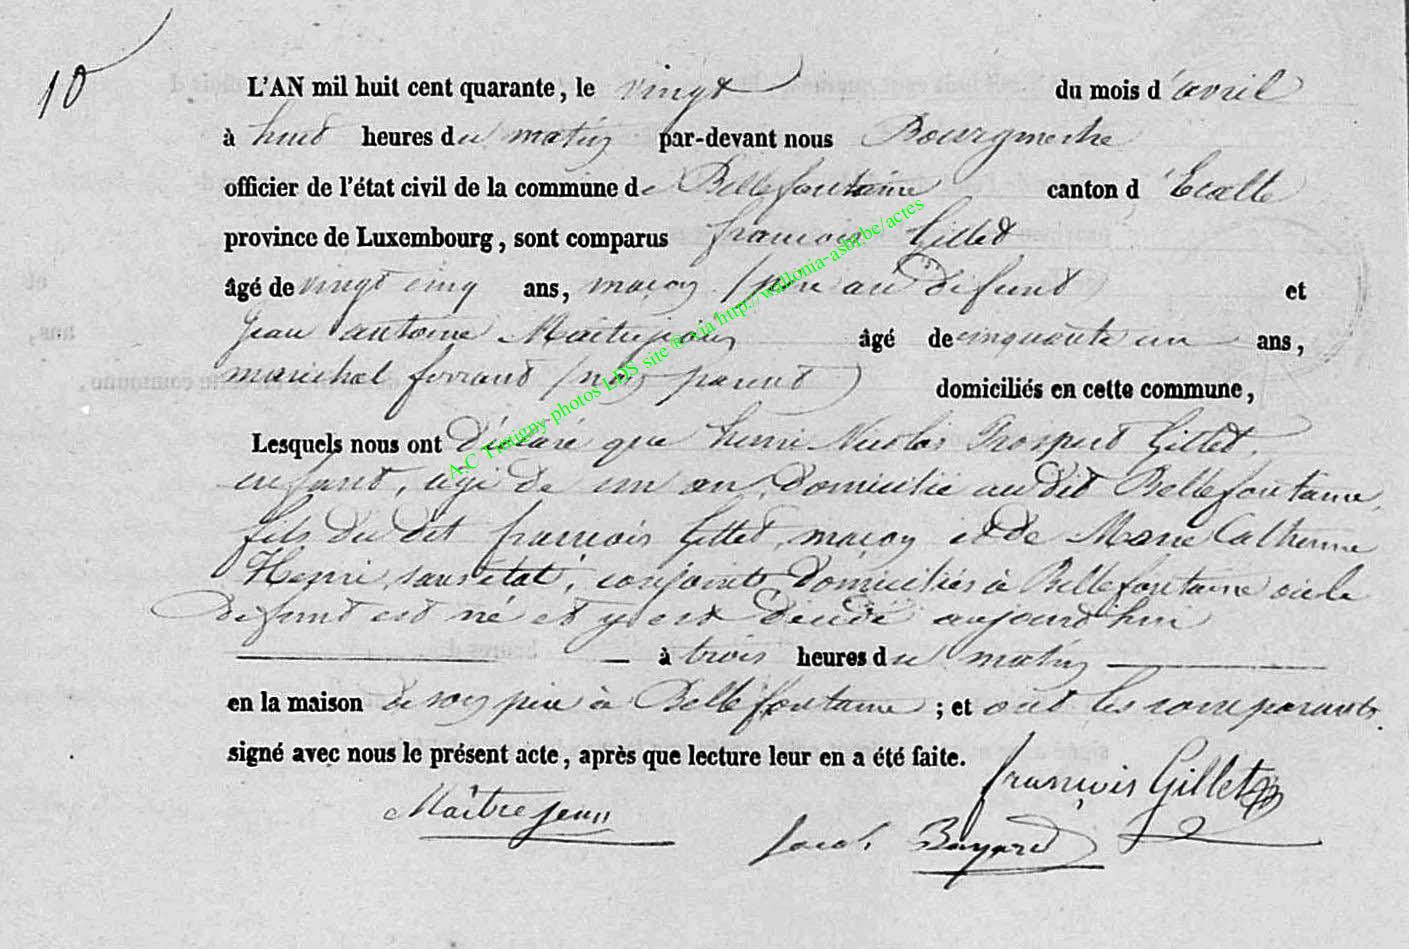 10
L'AN mil huit cent quarante, le vingt du mois d'avril
à huit heures du matin par-devant nous Bourgmestre
officier de l'état civil de la commune de Bellefontaine canton d'Etalle
province de Luxembourg, sont comparus francois Gillet
âgé de vingt cinq ans, maçon (père au défunt) et
Jean antoine Maitrejean âgé de cinquante un ans,
marichal ferrant (non parent) domiciliés en cette commune,
Lesquels nous ont déclaré que henri Nicolas Prospert Gillet,
enfant, agé de un an, domicilié audit Bellefontaine,
fils du dit francois Gillet, maçon et de Marie Catherine
Henri, sans état, conjoints domiciliés à Bellefontaine où le
defunt est né et y est décédé aujourd'hui
à trois heures du matin
en la maison de son père à Bellefontaine ; et ont les comparants
signé avec nous le présent acte, après que lecture leur en a été faite.
françois Gillet
Maîtrejean
Jacob Bayard
A.C Tintigny photos LDS site ® via http://wallonia-asbl.be/actes